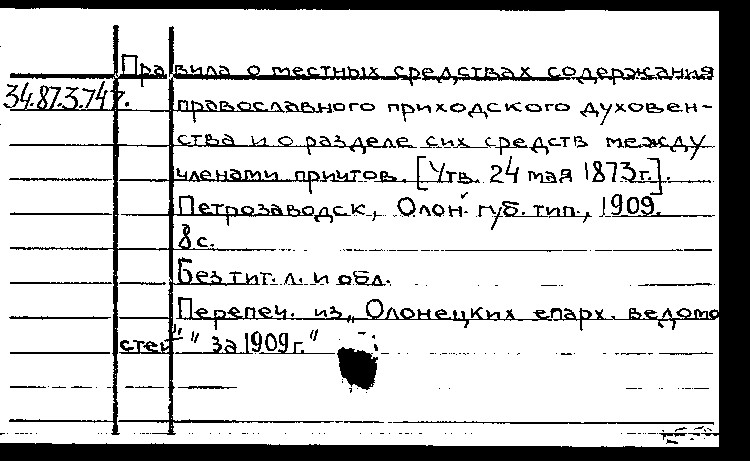 Правила о местных средствах содержания
34.87.3.747.
православного приходского духовен-
ства и о разделе сих средств между
членами причтов. [Утв. 24 мая 1873г.].
Петрозаводск, Олон. губ. тип., 1909.
8 с.
Без тит. л. и обл.
Перепеч. из „Олонецких епарх. ведомо
стей" " за 1909г."